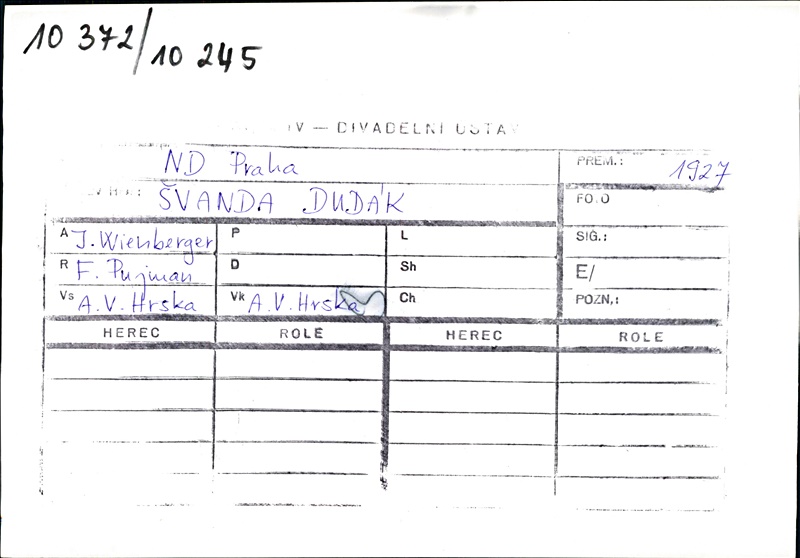 10 372/10 245
IV — DIVADELNÍ ÚSTAV
ND Praha PREM.: 1927
ŠVANDA DUDÁK FOTO
A J. Wienberger P L SIG.:
R F. Pujman D Sh E/
Vs A.V. Hrska Vk A.V. Hrska Ch POZN.:
HEREC ROLE HEREC ROLE